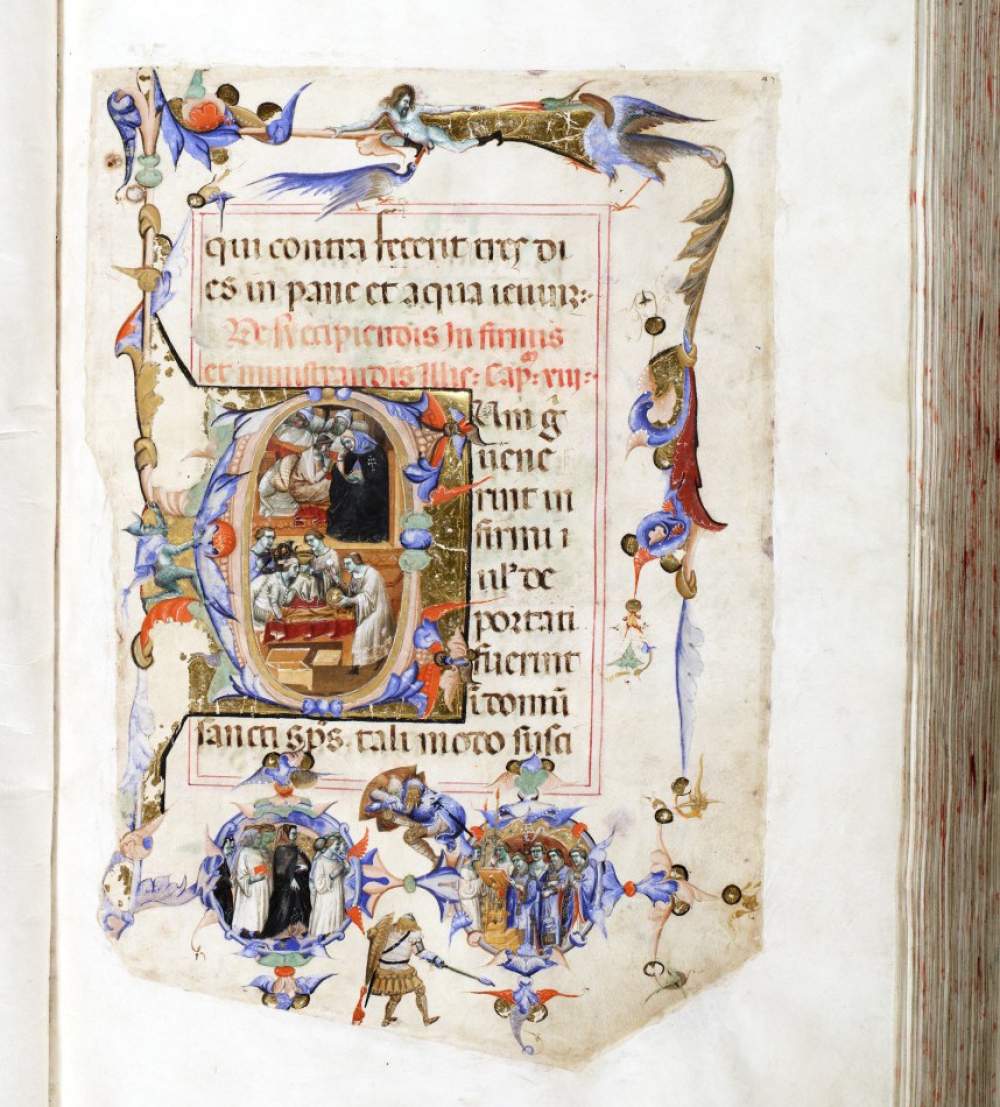 qui contra fecerit tres di
es in pane et aqua ieiunꝫ:
De Recipiendis Infirmis
et ministrandis illic: Capᵐ: xiii:
Cum ḡ
uene
rint in
firmi ł
uł de
portati
fuerint
ī domū
sancti sp̄s. tali modo susci